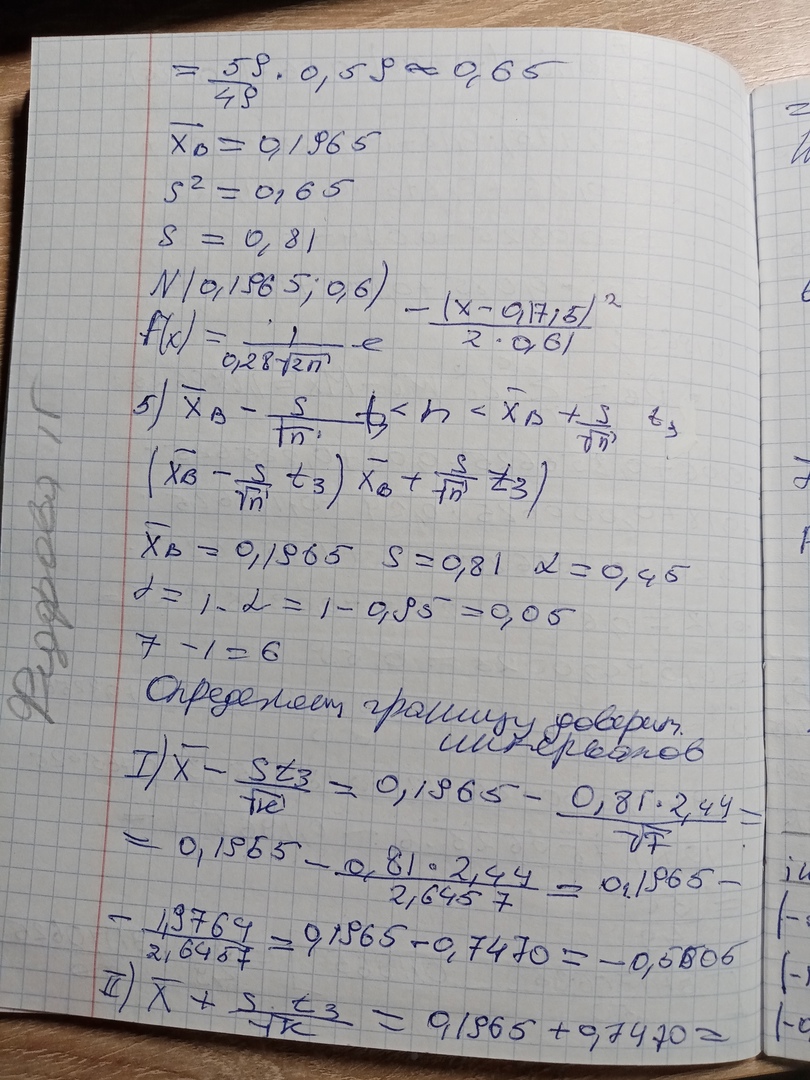 = 59/49 · 0,59 ≈ 0,65
x̄в = 0,1965
s² = 0,65
s = 0,81
N(0,1965; 0,6)
f(x) = 1/(0,28√2π) e − (x − 0,17,5)²/(2 · 0,61)
5) x̄в − s/√n t₃ < m < x̄в + s/√n t₃
(x̄в − s/√n t₃) x̄в + s/√n t₃)
x̄в = 0,1965 s = 0,81 α = 0,45
α = 1 − α = 1 − 0,95 = 0,05
7 − 1 = 6
Определяем границы доверит.
интервалов
I) x̄ − s t₃/√к = 0,1965 − 0,81 · 2,44/√7 =
= 0,1965 − 0,81 · 2,44/2,6457 = 0,1965 −
− 1,9764/2,6457 = 0,1965 − 0,7470 = −0,5505
II) x̄ + s · t₃/√к = 0,1965 + 0,7470 =